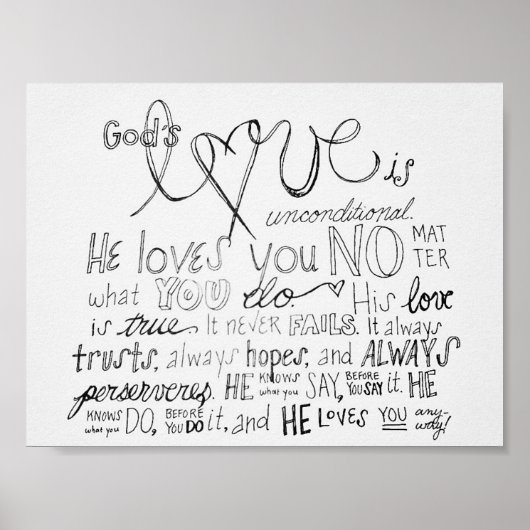 God's love is
unconditional.
He loves you NO MATTER
what YOU do. His love
is true. It never FAILS. It always
trusts, always hopes, and ALWAYS
perserveres. HE KNOWS what you SAY, BEFORE YOU SAY it. HE
KNOWS what you DO, BEFORE YOU DO it, and HE LOVES YOU any-way!